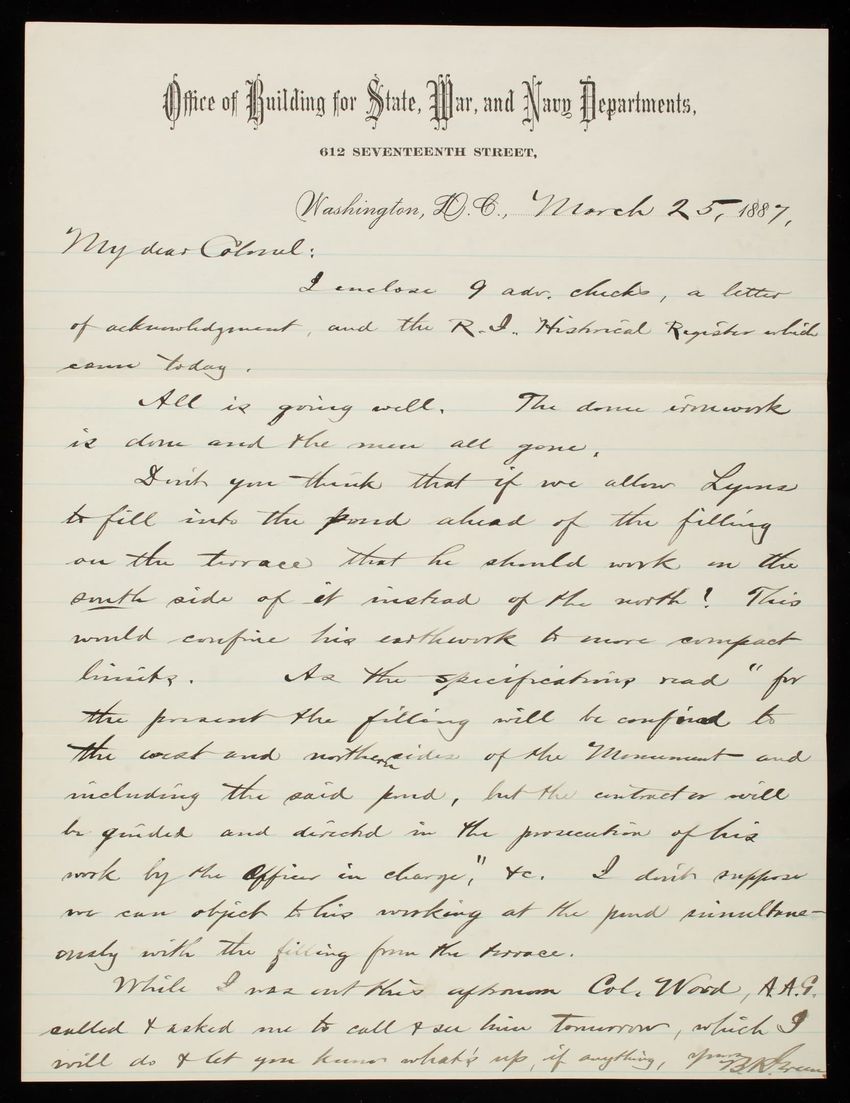 Office of Building for State, War, and Navy Departments,
612 SEVENTEENTH STREET,
Washington, D.C., March 25, 1887,
My dear Colonel:
I enclose 9 adv. checks, a letter
of acknowledgment, and the R.I. Historical Register which
came today.
All is going well. The dome ironwork
is done and the men all gone.
Don't you think that if we allow Lyons
to fill into the pond ahead of the filling
on the terrace that he should work on the
south side of it instead of the north! This
would confine his earthwork to more compact
limits. As the specifications read "for
the present the filling will be confined to
the west and northern sides of the Monument and
including the said pond, but the contractor will
be guided and directed in the prosecution of his
work by the Officer in charge," &c. I don't suppose
we can object to his working at the pond simultane-
ously with the filling from the terrace.
While I was out this afternoon Col. Wood, A.A.G.
called & asked me to call & see him tomorrow, which I
will do & let you know what's up, if anything, Yours